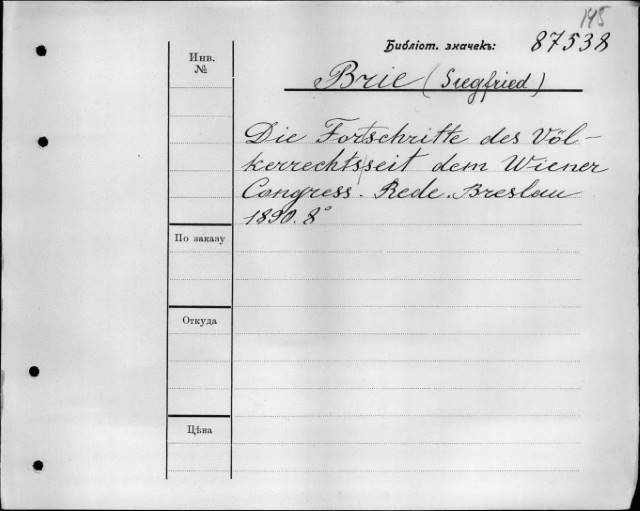 145
Библіот. значекъ: 87538
Инв.
№
Brie (Siegfried)
Die Fortschritte des Völ-
kerrechts seit dem Wiener
Congress. Rede. Breslau
1890. 8°
По заказу
Откуда
Цѣна